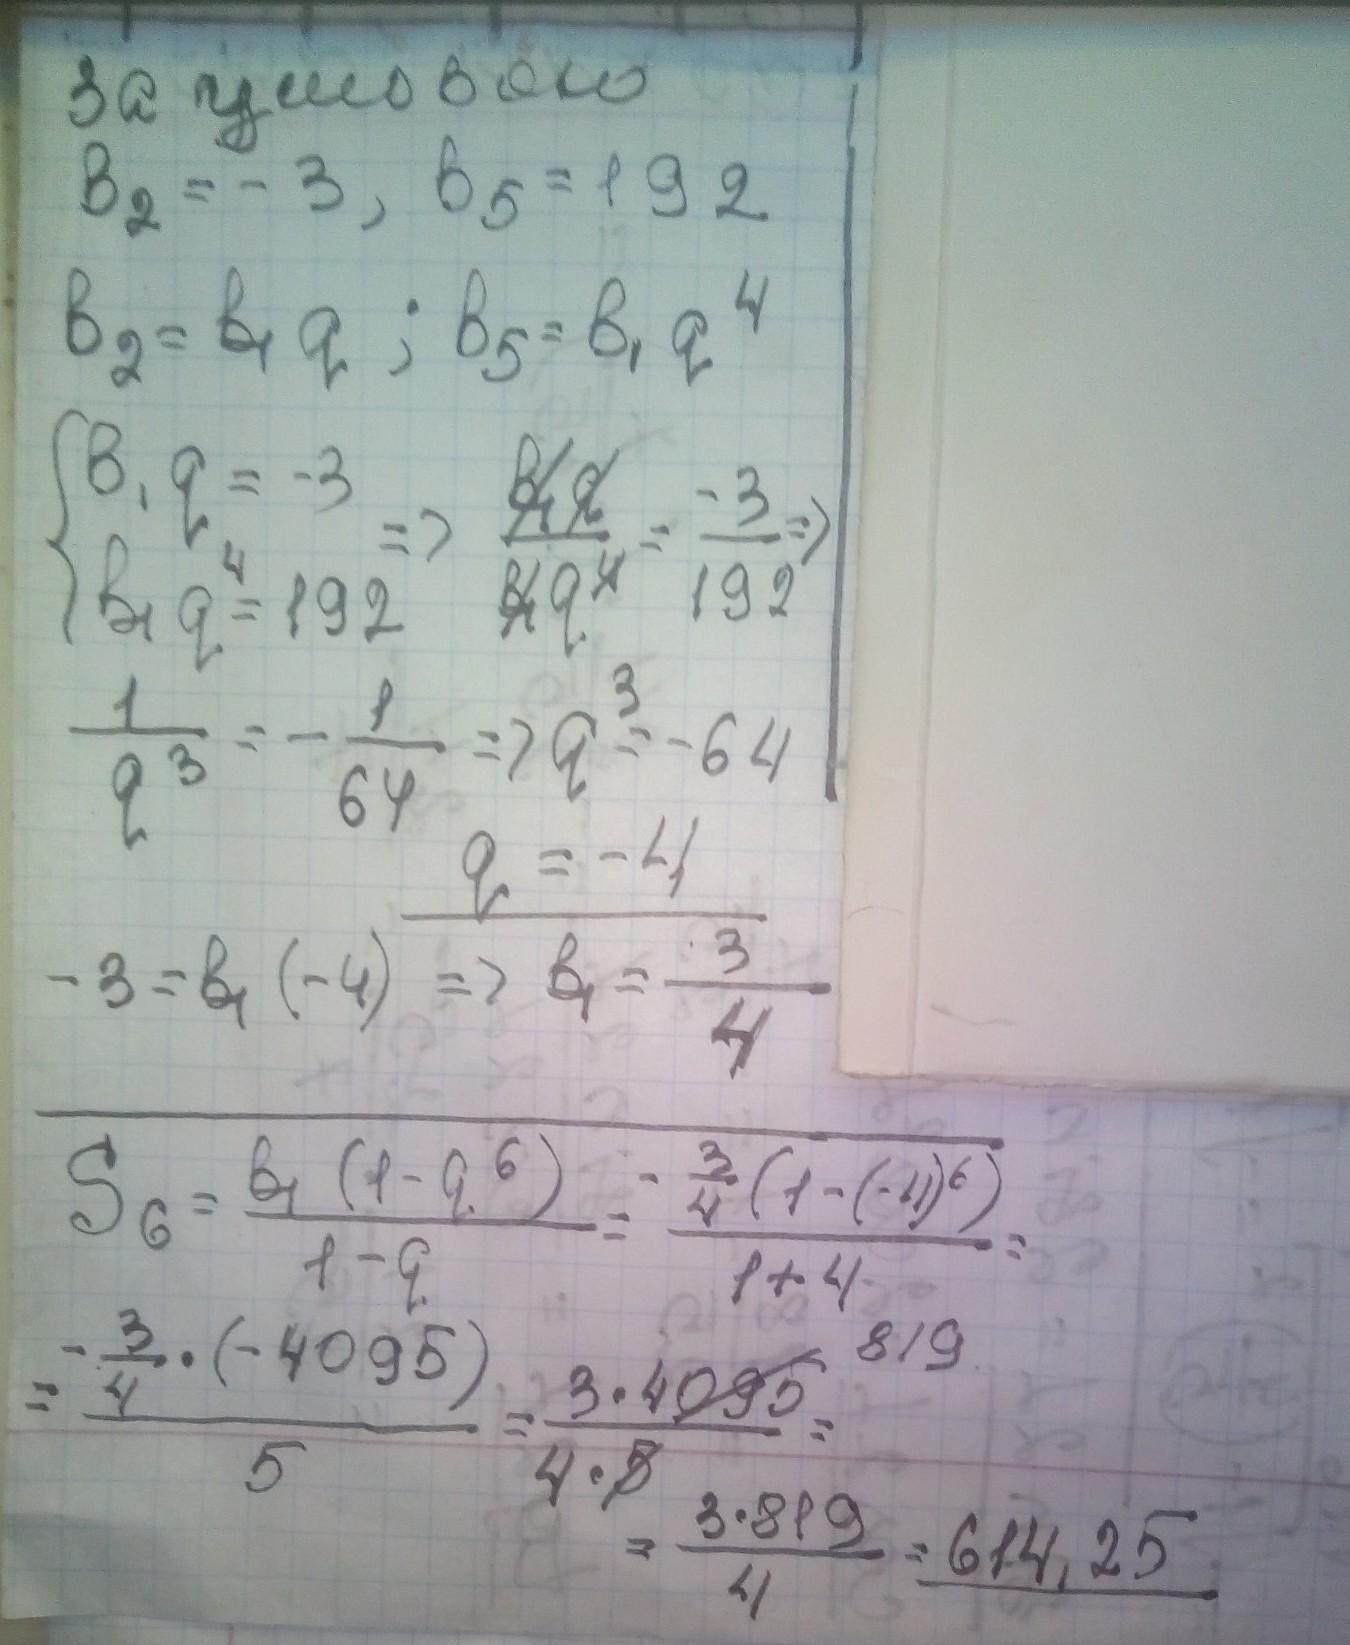 За умовою
b₂ = -3, b₅ = 192
b₂ = b₁ q ; b₅ = b₁ q⁴
{ b₁ q = -3 b₁ q⁴ = 192 => b₁q / b₁q⁴ = -3 / 192 =>
1 / q³ = - 1 / 64 => q³ = -64
q = -4
-3 = b₁ (-4) => b₁ = 3 / 4
S₆ = b₁ (1 - q⁶) / 1 - q = - 3/4 (1 - (-4)⁶) / 1 + 4 =
= - 3/4 · (-4095) / 5 = 3 · 4095 / 4 · 5 = 819
= 3 · 819 / 4 = 614,25